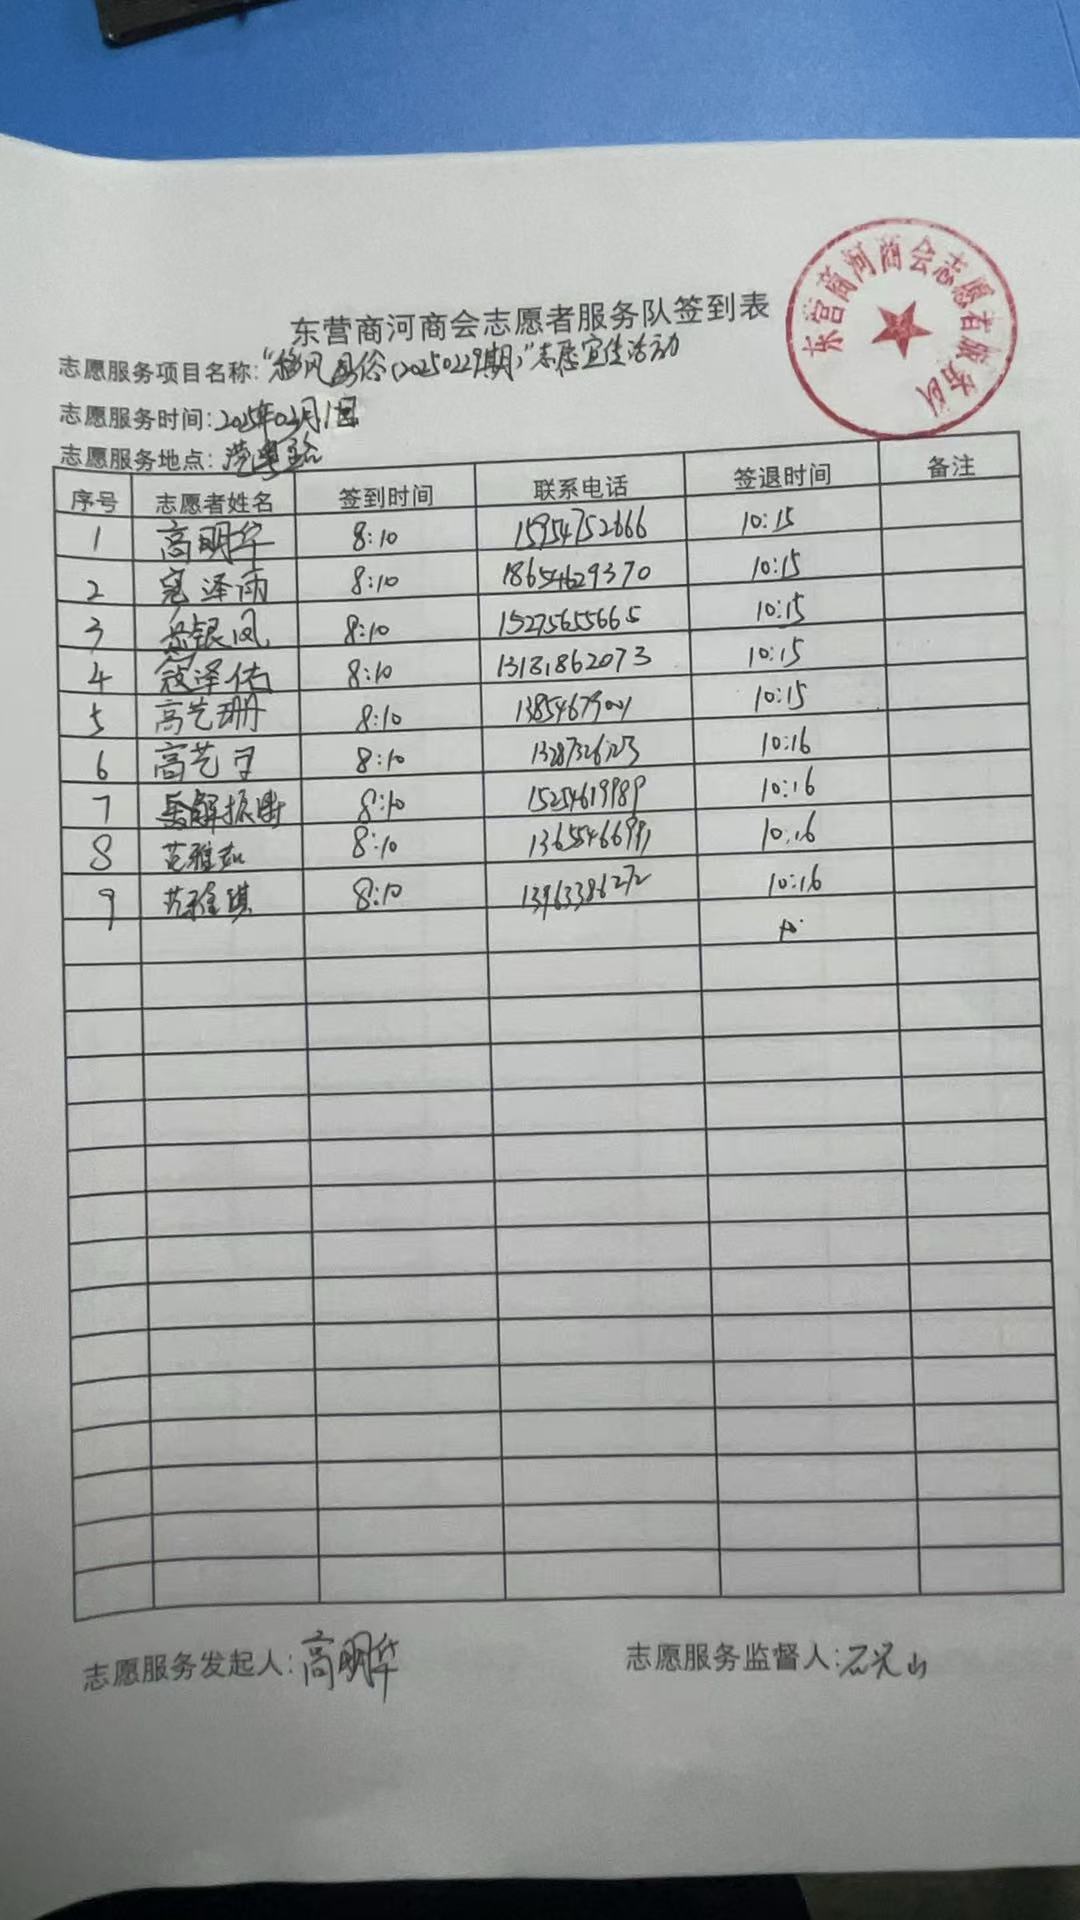 东营商河商会志愿者服务队
东营商河商会志愿者服务队签到表
志愿服务项目名称:"移风易俗(20250229期)"志愿宣传活动
志愿服务时间:2025年03月1日
志愿服务地点:
序号 志愿者姓名 签到时间 联系电话 签退时间 备注
1 高明华 8:10 15954752666 10:15
2 寇泽雨 8:10 18654629370 10:15
3 岳银凤 8:10 15275655665 10:15
4 寇泽佑 8:10 13181862073 10:15
5 高艺珊 8:10 10:15
6 高艺 8:10 10:16
7 解振 8:10 15254619989 10:16
8 范雅茹 8:10 13655466991 10:16
9 范雅琪 8:10 13963386272 10:16
志愿服务发起人:高明华
志愿服务监督人:石光山